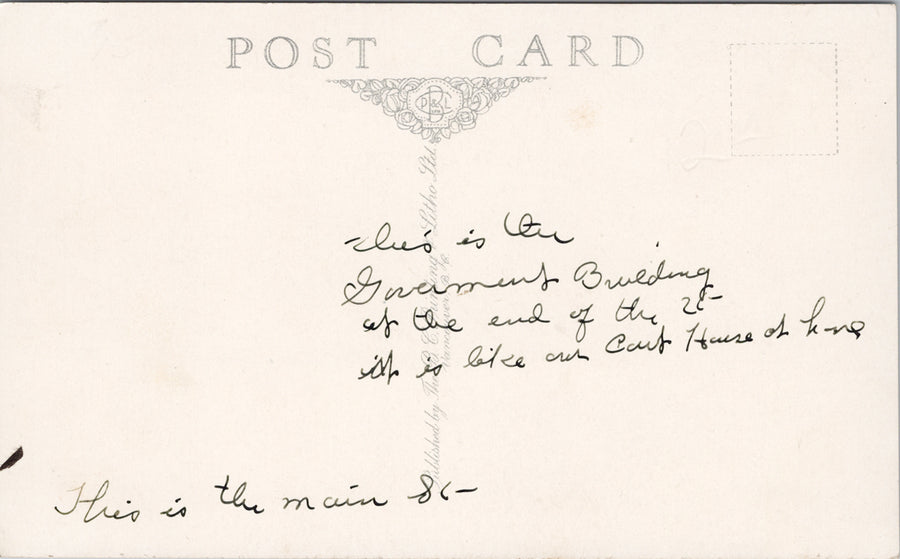 POST CARD
B P & L
Published by The B.C. Printing & Litho Ltd.
Vancouver B.C.
This is the
Goverment Building
at the end of the St
it is like our Cort House at home
This is the main St